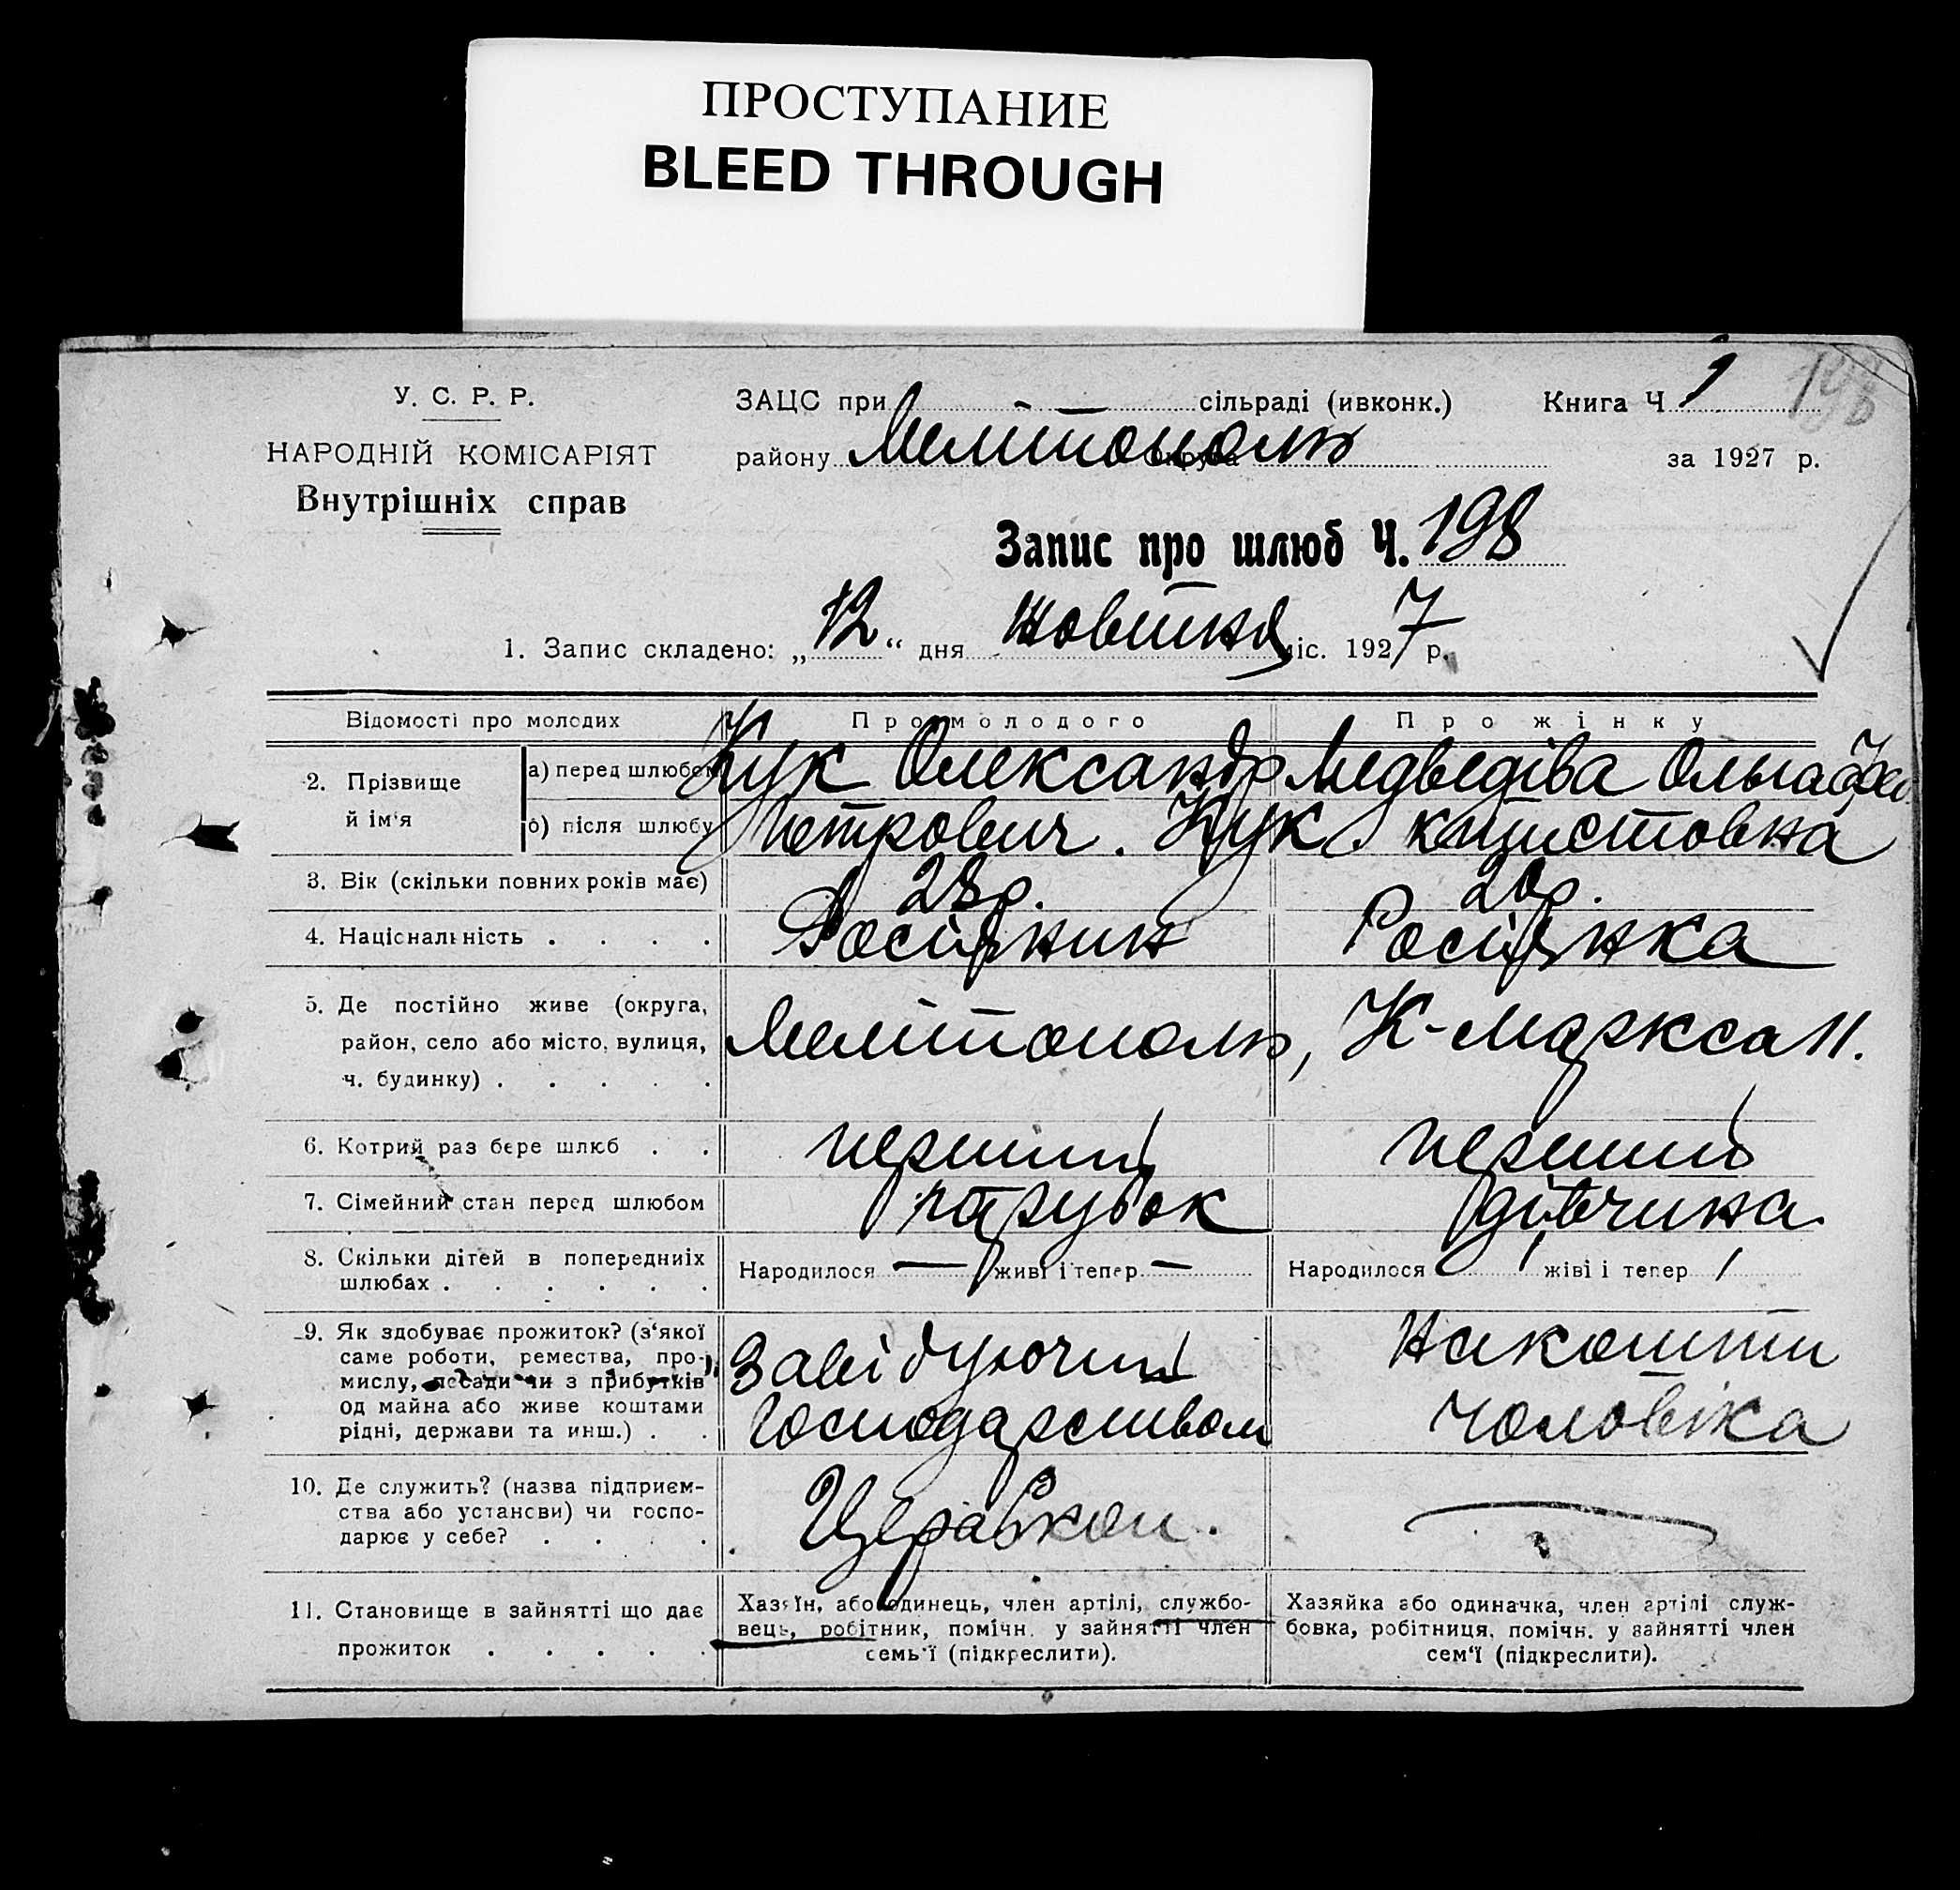 ПРОСТУПАНИЕ
BLEED THROUGH
У. С. Р. Р.
НАРОДНІЙ КОМІСАРІЯТ
Внутрішніх справ
ЗАЦС при сільраді (ивконк.) Книга Ч 1 198
району Мелітополь округа за 1927 р.
Запис про шлюб Ч. 198
1. Запис складено: „12“ дня Жовтня міс. 1927 р.
Відомості про молодих Про молодого Про жінку
2. Прізвище й ім‘я
а) перед шлюбом Кук Олександр Медведіва Ольга
б) після шлюбу Петрович. Кук
3. Вік (скільки повних років має) 28 р. 20 р.
4. Національність . . . . Росіянин Росіянка
5. Де постійно живе (округа,
район, село або місто, вулиця,
ч. будинку) . . . . .
Мелітополь, К-Маркса 11.
6. Котрий раз бере шлюб . . перший перший
7. Сімейний стан перед шлюбом парубок дівчина
8. Скільки дітей в попередниіх
шлюбах . . . . . .
Народилося — живі і тепер — Народилося / жіві і тепер /
9. Як здобуває прожиток? (з‘якої
саме роботи, ремества, про-
мислу, посади чи з прибутків
од майна або живе коштами
рідні, держави та инш.) . .
Завідуючий
Господарством
На кошти
чоловіка
10. Де служить? (назва підприєм-
ства або установи) чи госпо-
дарює у себе? . . . .
Церабкоп.
11. Становище в зайнятті що дає
прожиток . . . . .
Хазяїн, або одинець, член артілі, службо-
вець, робітник, помічн. у зайнятті член
семь‘ї (підкреслити).
Хазяйка або одиначка, член артілі служ-
бовка, робітниця, помічн. у зайнятті член
сем‘ї (підкреслити).